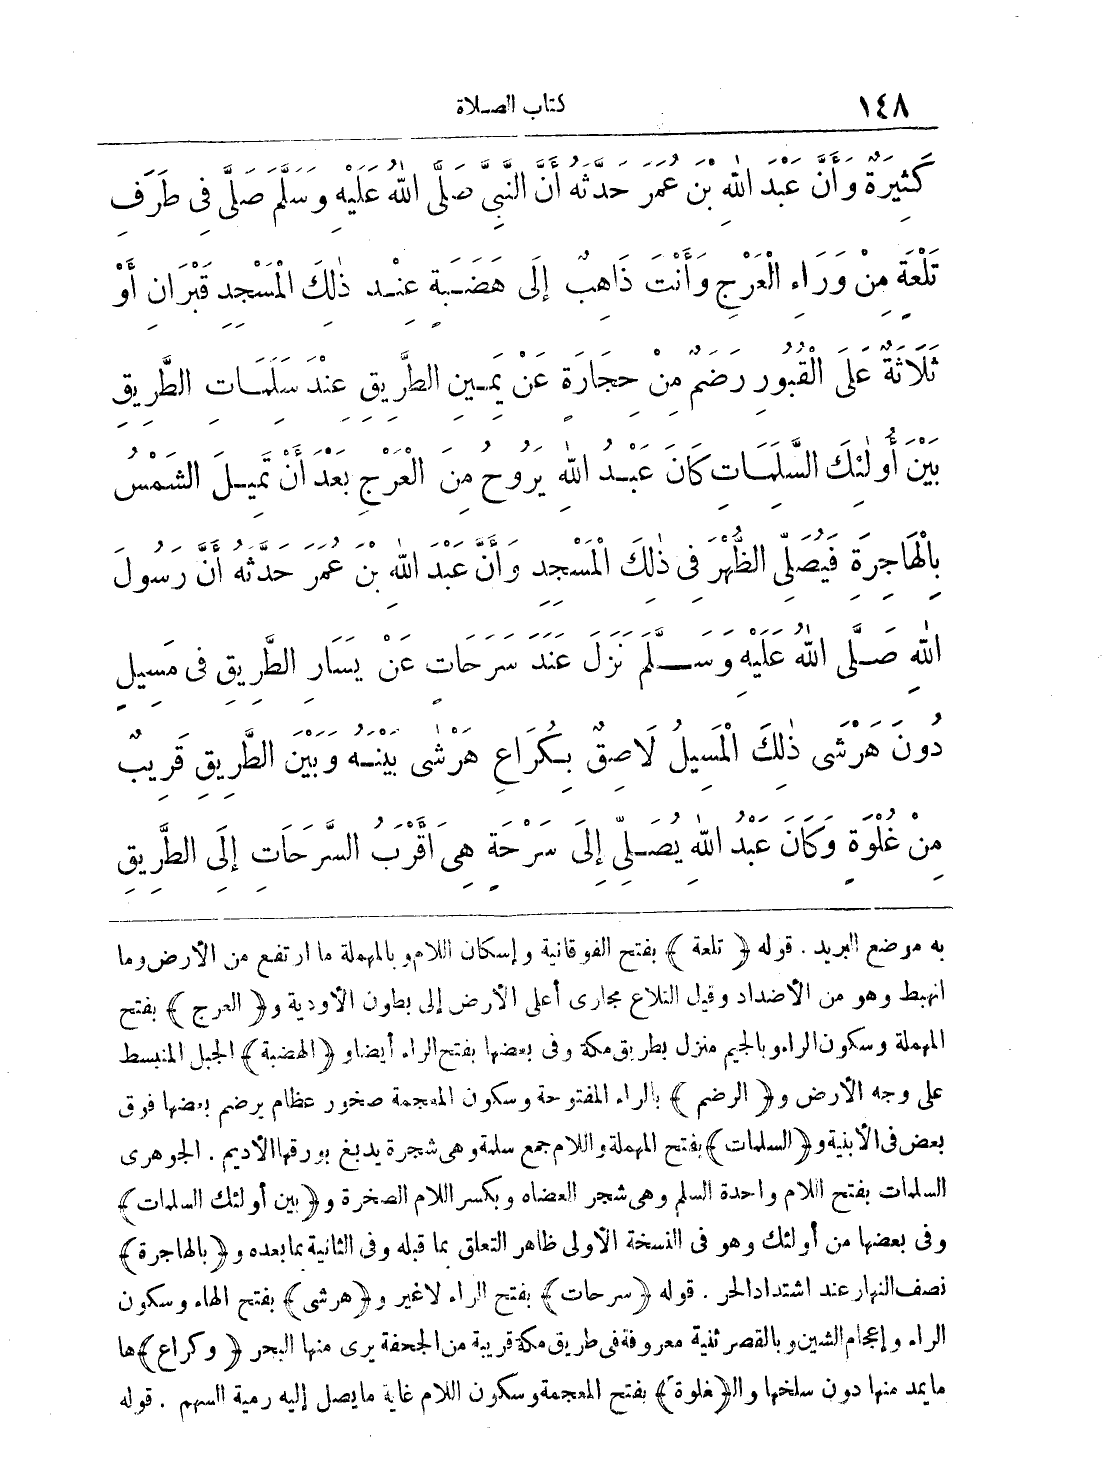 ١٤٨ كتاب الصلاة
كَثِيرَةٌ وَأَنَّ عَبْدَ اللهِ بْنَ عُمَرَ حَدَّثَهُ أَنَّ النَّبِيَّ صَلَّى اللهُ عَلَيْهِ وَسَلَّمَ صَلَّى فِى طَرَفِ
تَلْعَةٍ مِنْ وَرَاءِ الْعَرْجِ وَأَنْتَ ذَاهِبٌ إِلَى هَضَبَةٍ عِنْدَ ذٰلِكَ الْمَسْجِدِ قَبْرَانِ أَوْ
ثَلَاثَةٌ عَلَى الْقُبُورِ رَضَمٌ مِنْ حِجَارَةٍ عَنْ يَمِينِ الطَّرِيقِ عِنْدَ سَلَمَاتِ الطَّرِيقِ
بَيْنَ أُولٰئِكَ السَّلِمَاتِ كَانَ عَبْدُ اللهِ يَرُوحُ مِنَ الْعَرْجِ بَعْدَ أَنْ تَمِيلَ الشَّمْسُ
بِالْهَاجِرَةِ فَيُصَلِّى الظُّهْرَ فِى ذٰلِكَ الْمَسْجِدِ وَأَنَّ عَبْدَ اللهِ بْنَ عُمَرَ حَدَّثَهُ أَنَّ رَسُولَ
اللهِ صَلَّى اللهُ عَلَيْهِ وَسَلَّمَ نَزَلَ عَنْدَ سَرَحَاتٍ عَنْ يَسَارِ الطَّرِيقِ فِى مَسِيلٍ
دُونَ هَرْشَى ذٰلِكَ الْمَسِيلُ لَاصِقٌ بِكُرَاعِ هَرْشٰى بَيْنَهُ وَبَيْنَ الطَّرِيقِ قَرِيبٌ
مِنْ غُلْوَةٍ وَكَانَ عَبْدُ اللهِ يُصَلِّى إِلَى سَرْحَةٍ هِىَ أَقْرَبُ السَّرَحَاتِ إِلَى الطَّرِيقِ
به موضع البريد . قوله ﴿ تلعة ﴾ بفتح الفوقانية و إسكان اللام و بالمهملة ما ارتفع من الأرض وما
انهبط وهو من الأضداد وقيل التلاع مجارى أعلى الأرض إلى بطون الأودية و﴿ العرج ﴾ بفتح
المهملة وسكون الراء وبالجيم منزل بطريق مكة وفى بعضها بفتح الراء أيضا و ﴿الهضبة﴾ الجبل المنبسط
على وجه الأرض و﴿ الرضم ﴾ بالراء المفتوحة وسكون المعجمة صخور عظام يرضم بعضها فوق
بعض فى الأبنية و﴿السلمات﴾ بفتح المهملة واللام جمع سلمة وهى شجرة يدبغ بورقها الأديم . الجوهرى
السلمات بفتح اللام واحدة السلم وهى شجر العضاه وبكسر اللام الصخرة و﴿بين أولئك السلمات﴾
وفى بعضها من أولئك وهو فى النسخة الأولى ظاهر التعلق بما قبله وفى الثانية بما بعده و﴿بالهاجرة﴾
نصف النهار عند اشتداد الحر . قوله ﴿سرحات﴾ بفتح الراء لاغير و﴿هرشى﴾ بفتح الهاء وسكون
الراء و إعجام الشين و بالقصر ثنية معروفة فى طريق مكة قريبة من الجحفة يرى منها البحر ﴿ وكراع ﴾ها
ما يمد منها دون سلخها والـ﴿غلوة﴾ بفتح المعجمة وسكون اللام غاية ما يصل إليه رمية السهم . قوله